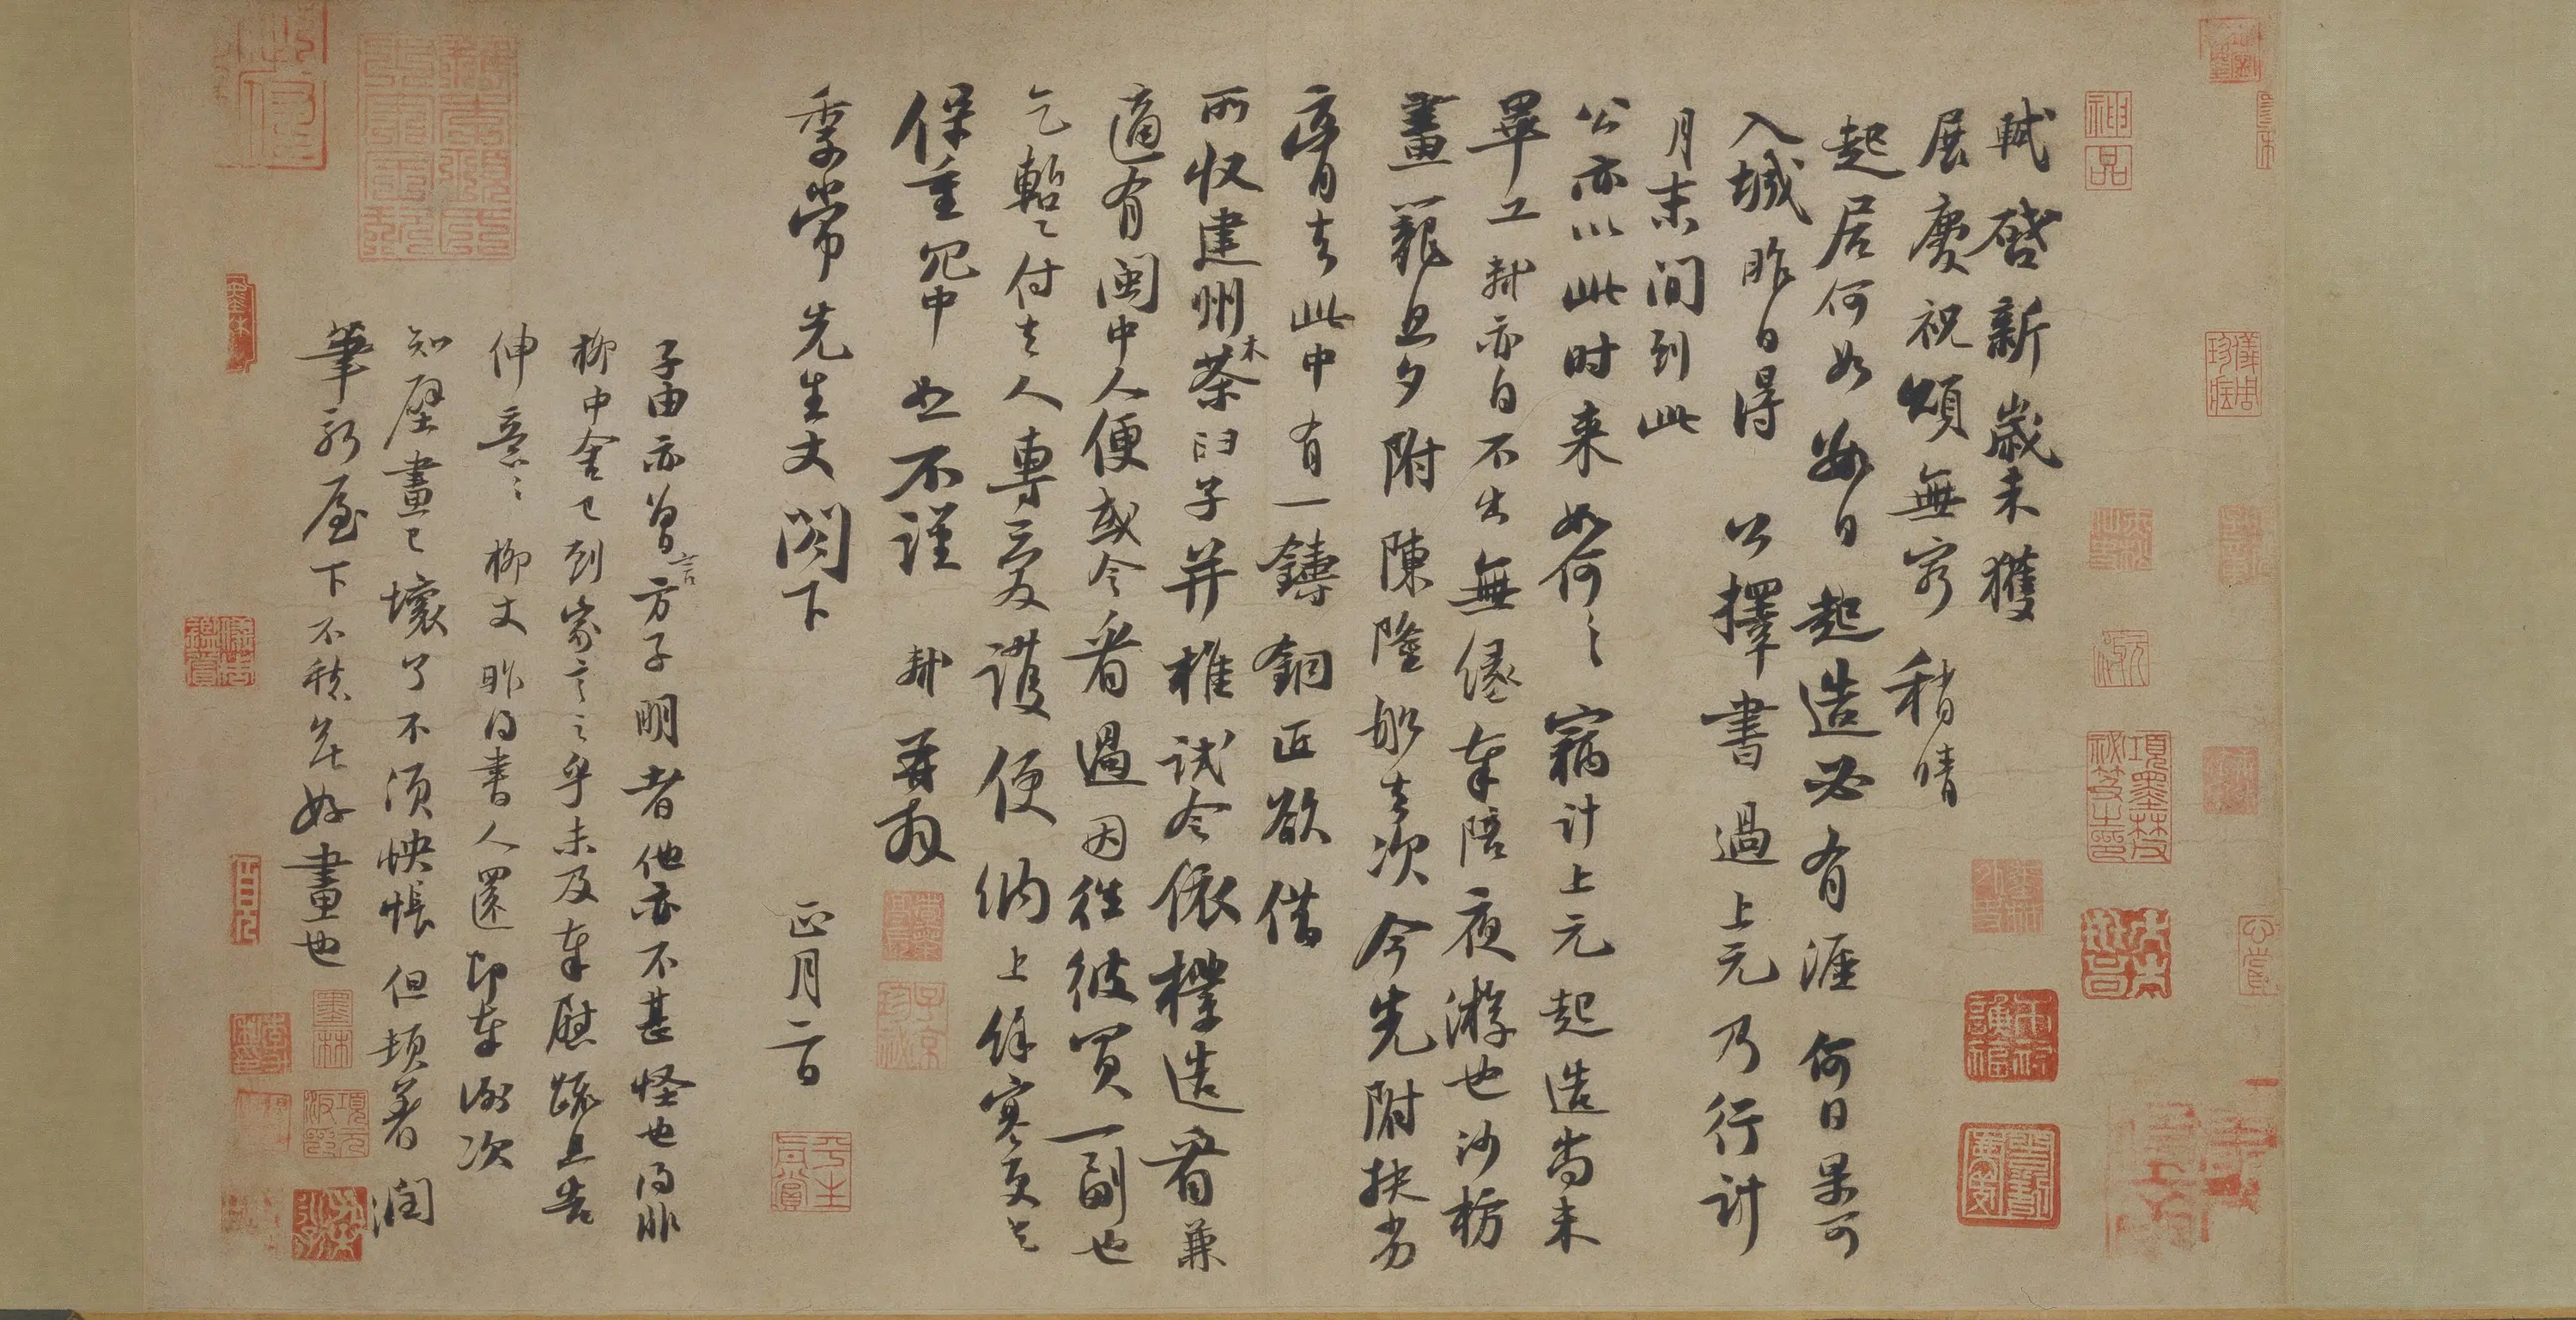 軾啓新歲未獲
展慶祝頌無窮稍晴
起居何如數日起造必有涯何日果可
入城昨日得公擇書過上元乃行計
月末間到此
公亦以此時来如何〻竊計上元起造尚未
畢工軾亦自不出無緣奉陪夜游也沙枋
畫籠旦夕附陳隆船去次今先附扶劣
膏去此中有一鑄銅匠欲借
所收建州木茶臼子并椎試令依樣造看兼
適有閩中人便或令看過因往彼買一副也
乞蹔〻付去人專愛護便納上餘寒更乞
保重冗中恕不謹 軾再拜
季常先生丈閤下
正月二日
子由亦曾言方子明者他亦不甚怪也得非
柳中舍已到家言之乎未及奉慰疏且告
伸意〻柳丈昨得書人還即奉謝次
知壁畫已壞了不須怏悵但頓著潤
筆新屋下不愁無好畫也
神品